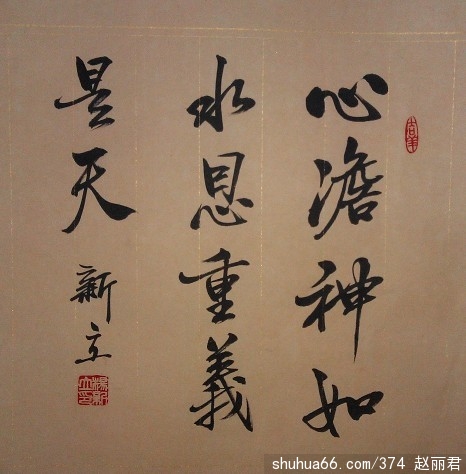 心澹神如
水恩重義
是天
新立
楊新
立印
shuhua66.com/374 赵丽君